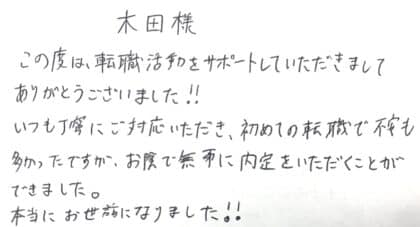 木田様
この度は、転職活動をサポートしていただきまして
ありがとうございました!!
いつも丁寧にご対応いただき、初めての転職で不安も
多かったですが、お陰で無事に内定をいただくことが
できました。
本当にお世話になりました!!